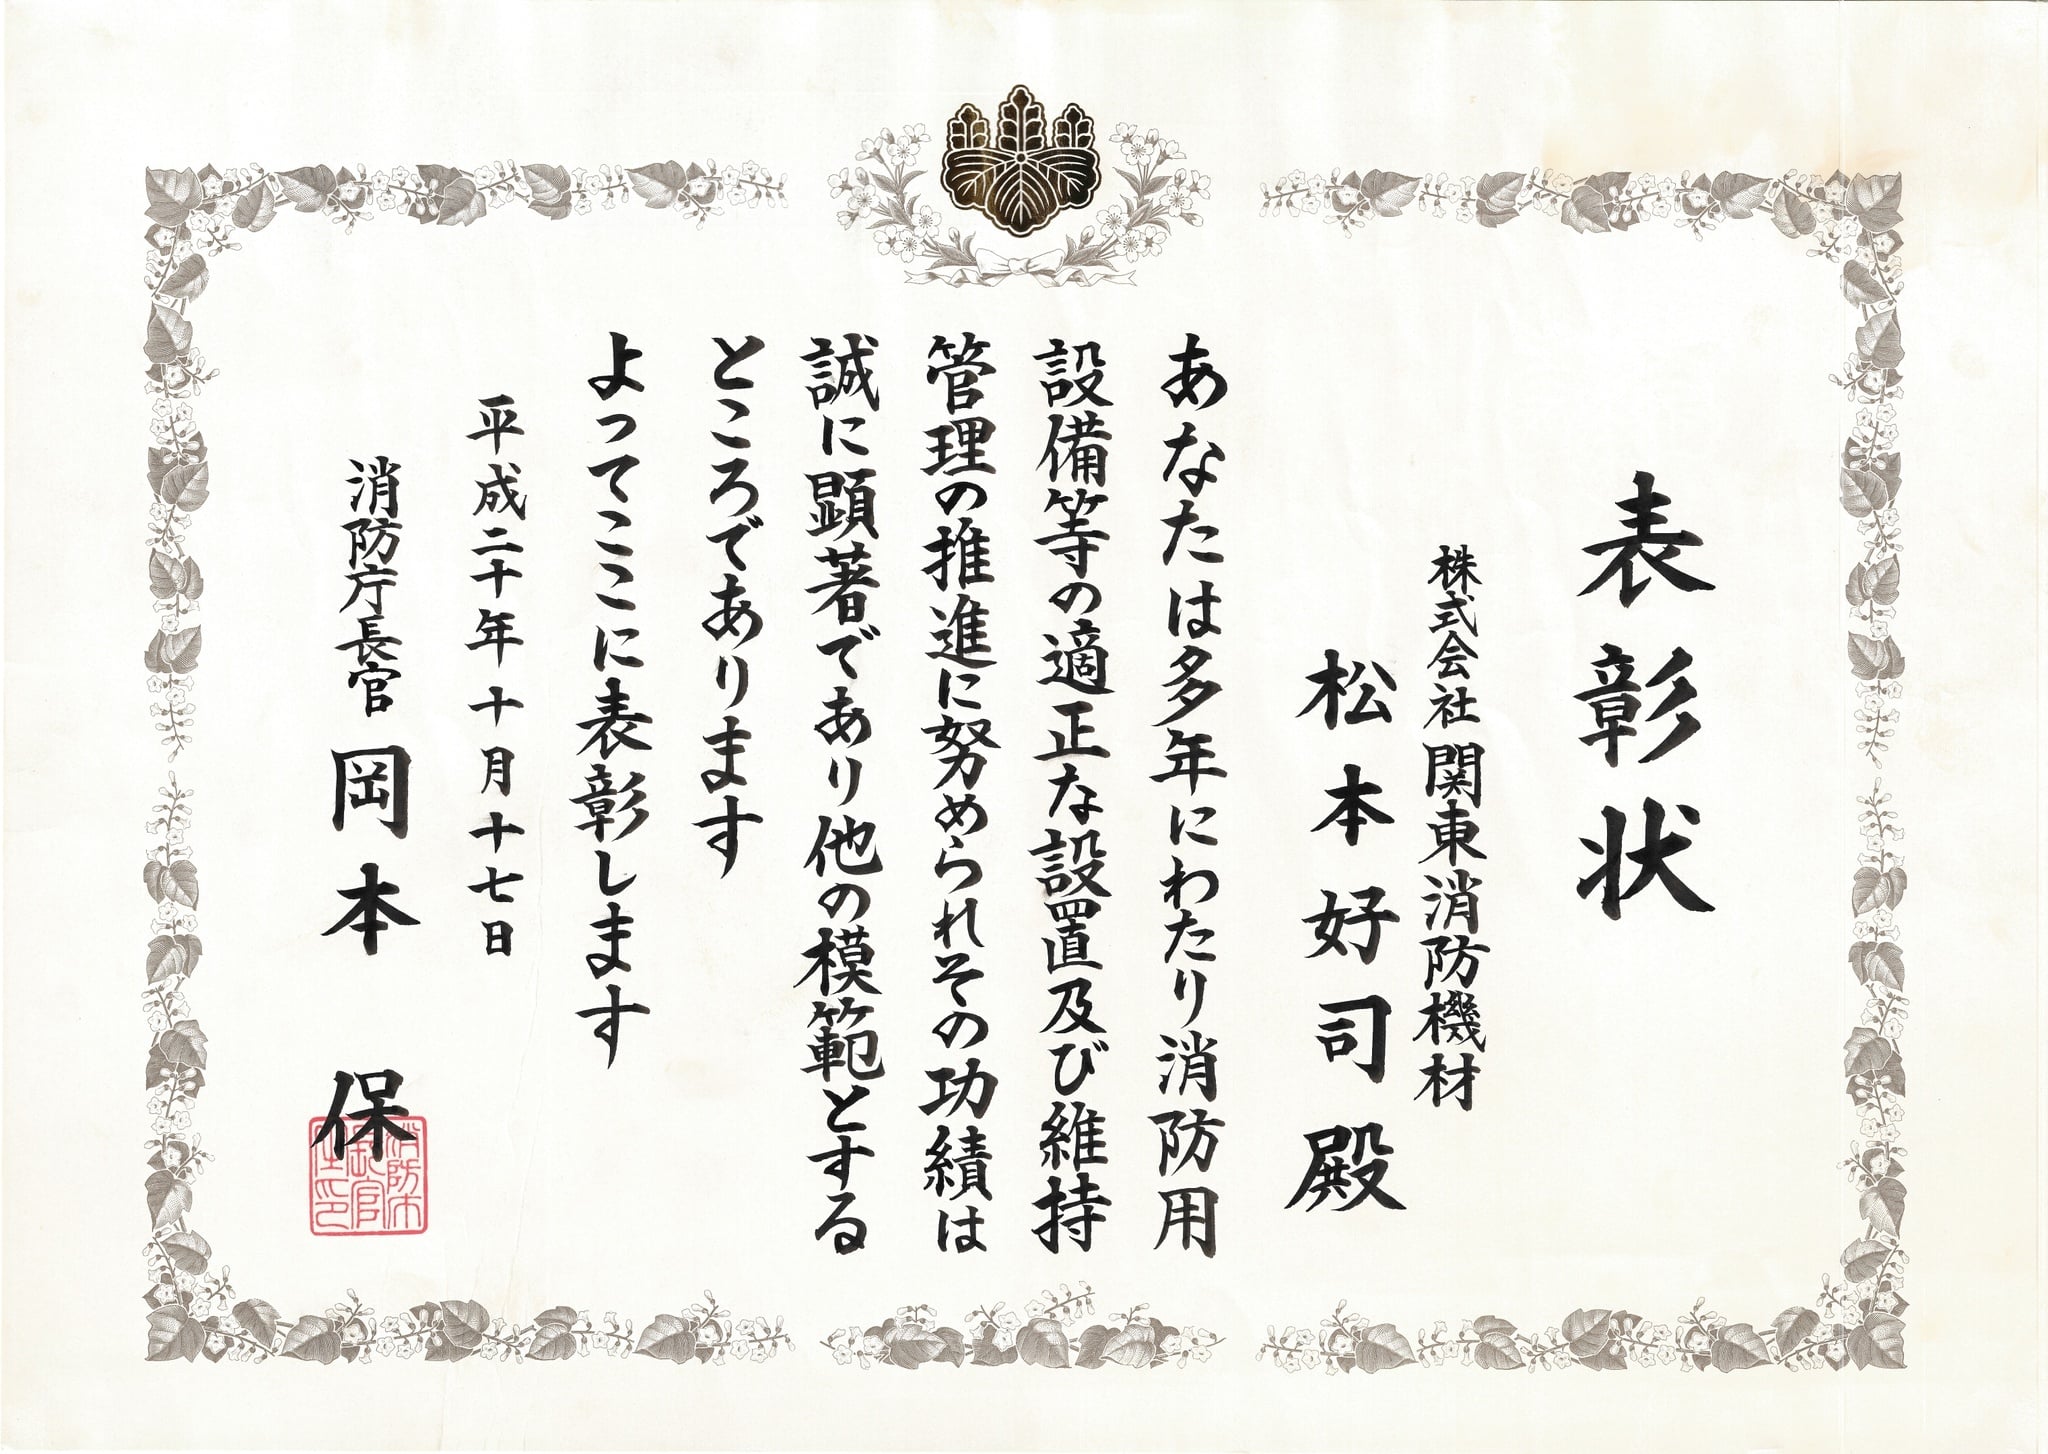 表彰状
株式会社関東消防機材
松本好司殿
あなたは多年にわたり消防用
設備等の適正な設置及び維持
管理の推進に努められその功績は
誠に顕著であり他の模範とする
ところであります
よってここに表彰します
平成二十年十月十七日
消防庁長官 岡本 保
消防庁
長官
之印